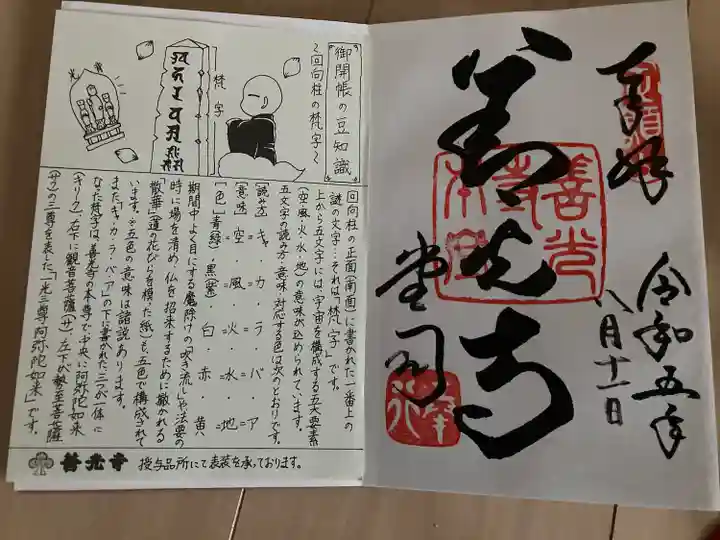 奉拝
令和五年
八月十一日
善光寺
堂司
善光
寺
御開帳の豆知識
〜回向柱の梵字〜
梵字
回向柱の正面(南面)に書かれた一番上の
謎の文字…それは「梵字」です。
上から五文字には、宇宙を構成する五大要素
(空・風・火・水・地)の意味が込められています。
五文字の読み方・意味・対応する色は次のとおりです。
〔読み方〕キャ・カ・ラ・バ・ア
〔意味〕空・風・火・水・地
〔色〕青(緑)・黒(紫)・白・赤・黄
期間中よく目にする魔除けの吹き流しや法要の
時に場を清め、仏を招来するために撒かれる
散華(蓮の花びらを模した紙)も、五色で構成されて
います。※五色の意味は諸説あります。
また、キャ・カ・ラ・バ・アの下に書かれた三つが一体に
なった梵字は、善光寺の本尊で、中央に阿弥陀如来
(キリーク)、右下に観音菩薩(サ)、左下が勢至菩薩
(サク)の三尊を表した「一光三尊阿弥陀如来」です。
善光寺 授与品所にて表装を承っております。